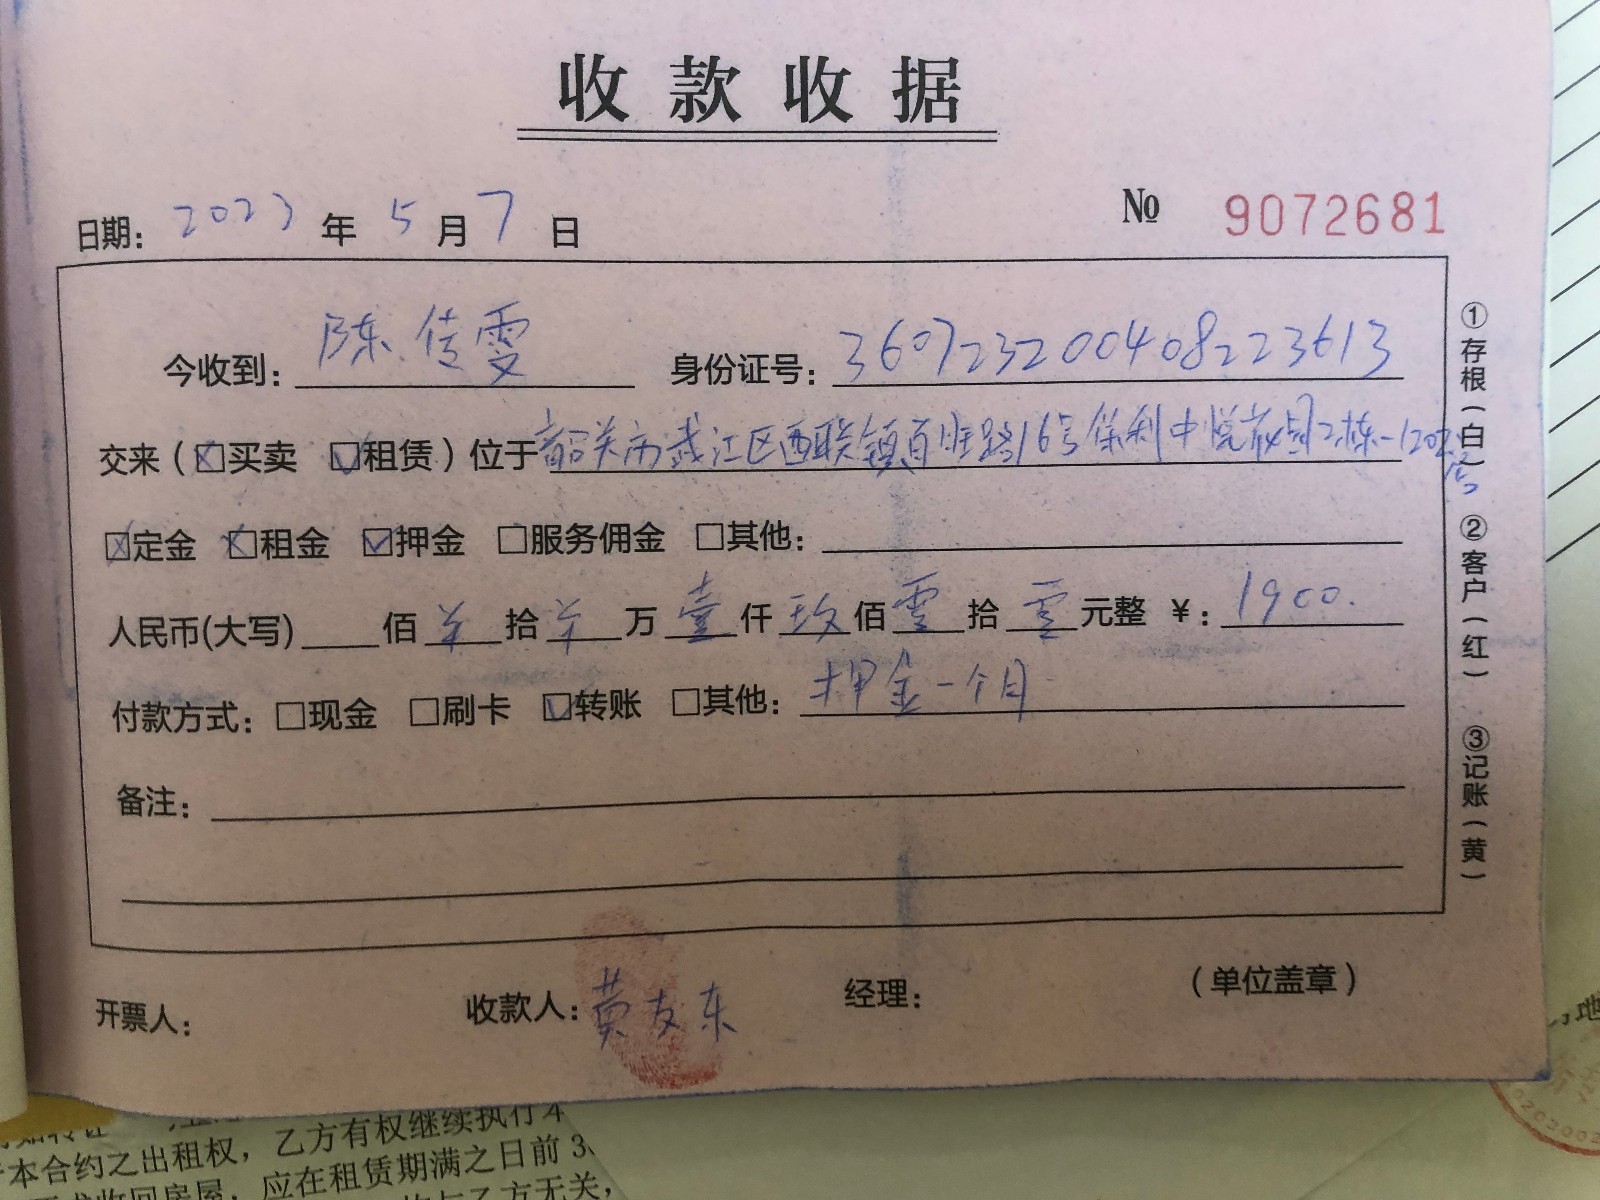 收款收据
日期: 2023 年 5 月 7 日 № 9072681
今收到: 陈传雯 身份证号: 360723200408223613
交来(☒买卖 ☑租赁)位于韶关市武江区西联镇百旺路16号保利中悦花园2栋-1202号
☒定金 ☒租金 ☑押金 □服务佣金 □其他:
人民币(大写) 佰 拾 万 壹 仟 玖 佰 零 拾 零 元整 ¥: 1900.
付款方式: □现金 □刷卡 ☑转账 □其他: 押金一个月
备注:
开票人: 收款人: 黄友东 经理: (单位盖章)
①存根(白) ②客户(红) ③记账(黄)
本合约之出租权,乙方有权继续执行本
收回房屋,应在租赁期满之日前
与乙方无关,
地